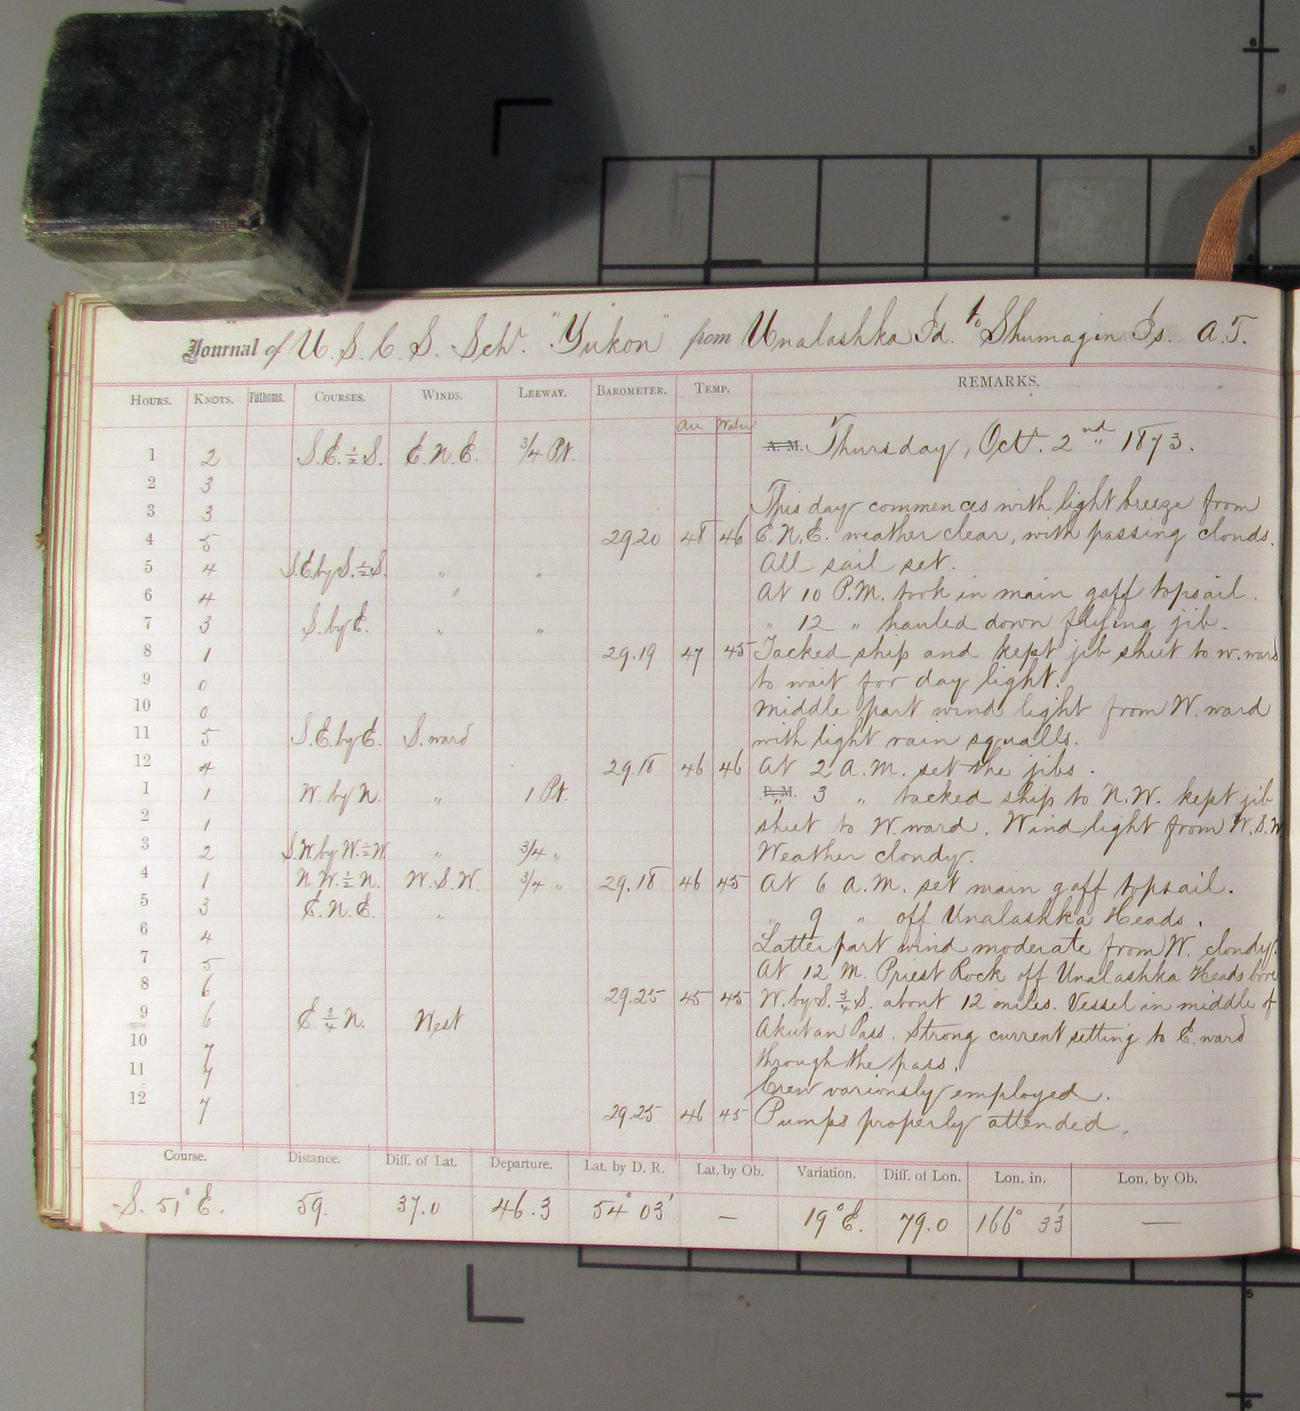 Journal of U. S. C. S. Schr. "Yukon" from Unalashka Id. to Shumagin Is. A.T.
HOURS. KNOTS. Fathoms. COURSES. WINDS. LEEWAY. BAROMETER. TEMP. REMARKS.
Air Water
1 2 S.E. ½ S. E.N.E. ¾ Pt. A. M. Thursday, Oct. 2nd 1873.
2 3
3 3 This day commences with light breeze from
4 5 29.20 48 46 E.N.E. weather clear, with passing clouds.
5 4 S.E. by S. ½ S. " " All sail set.
6 4 " At 10 P.M. took in main gaff topsail.
7 3 S. by E. " " " 12 " hauled down flying jib.
8 1 29.19 47 45 Tacked ship and kept jib sheet to W.ward
9 0 to wait for day light.
10 0 Middle part wind light from W.ward
11 5 S.E. by E. S.ward with light rain squalls.
12 4 29.18 46 46 At 2 A.M. set the jibs.
1 1 W. by N. " 1 Pt. P.M. " 3 " tacked ship to N.W. kept jib
2 1 sheet to W.ward. Wind light from W.S.W
3 2 S.W. by W. ½ W. " ¾ " Weather cloudy.
4 1 N.W. ½ N. W.S.W. ¾ " 29.18 46 45 At 6 A.M. set main gaff topsail.
5 3 E.N.E. " " 9 " off Unalashka Heads.
6 4 Latter part wind moderate from W. cloudy.
7 5 At 12 M. Priest Rock off Unalashka Heads bore
8 6 29.25 45 45 W. by S. ¾ S. about 12 miles. Vessel in middle of
9 6 E. ¾ N. West Akutan Pass. Strong current setting to E.ward
10 7 through the pass.
11 7 Crew variously employed.
12 7 29.25 46 45 Pumps properly attended.
Course. Distance. Diff. of Lat. Departure. Lat. by D. R. Lat. by Ob. Variation. Diff. of Lon. Lon. in. Lon. by Ob.
S. 51° E. 59. 37.0 46.3 54° 03' — 19° E. 79.0 166° 33' —